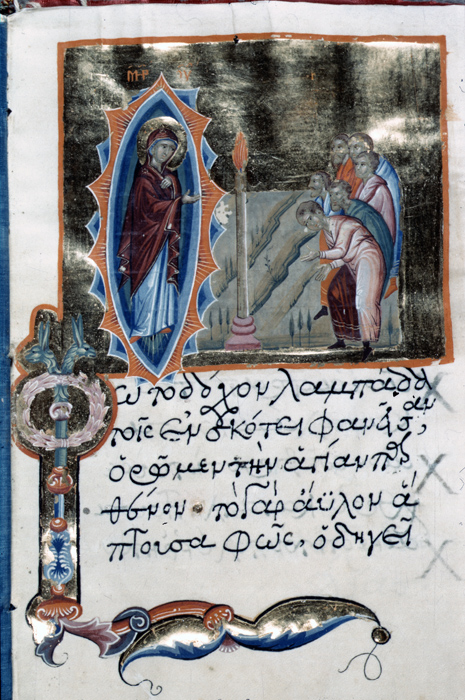 ΜΡ
Φωτοδόχον λαμπάδα
τοῖς ἐν σκότει φανεῖσαν,
ὁρῶμεν τὴν ἁγίαν παρ
θένον· τὸ γὰρ ἄϋλον ἅ
πτουσα φῶς, ὁδηγεῖ